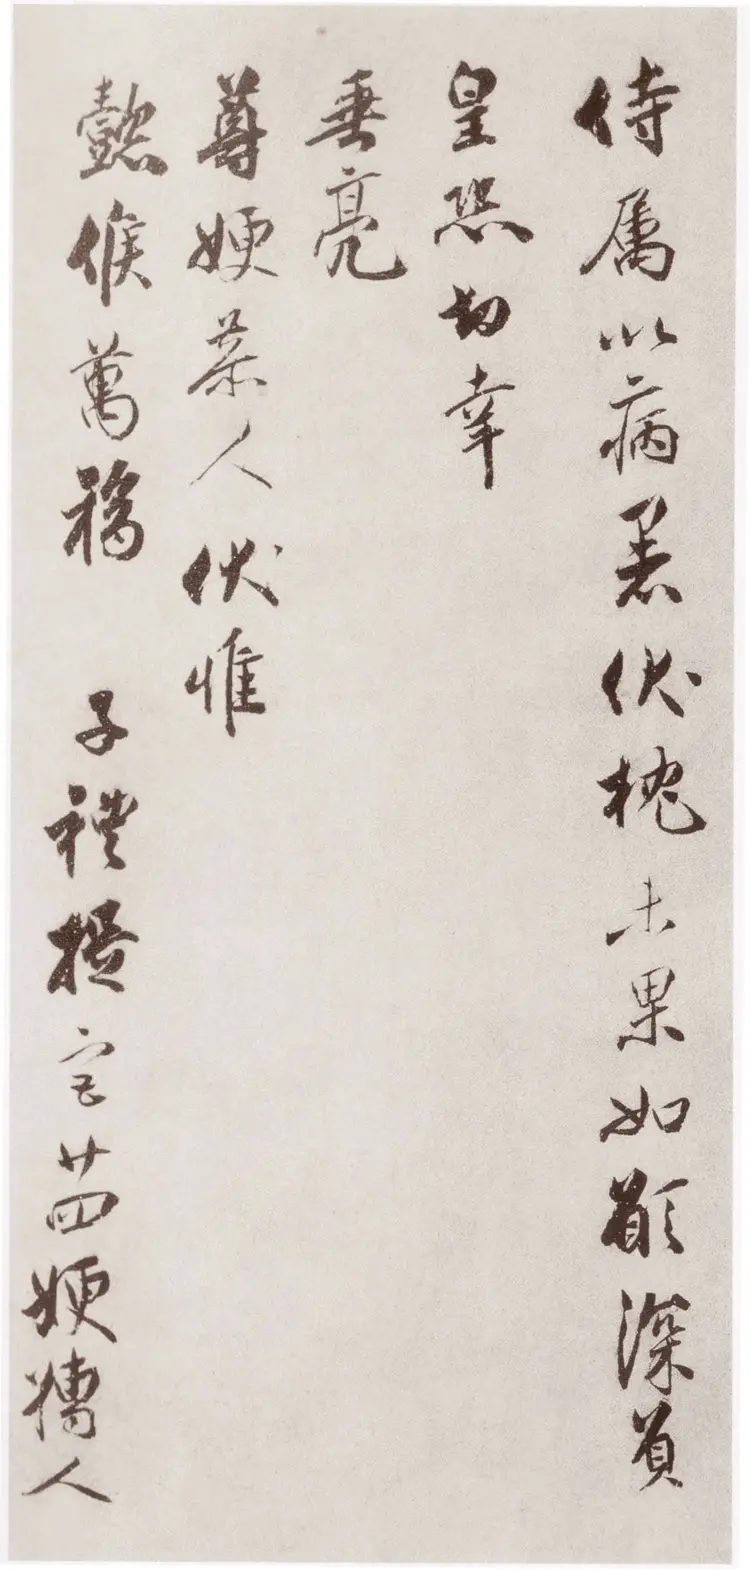 侍属以病伏枕未果如願深負
皇恐切幸
垂亮
尊嫂恭人伏惟
懿候萬福 子禮提宮廿四嫂孺人